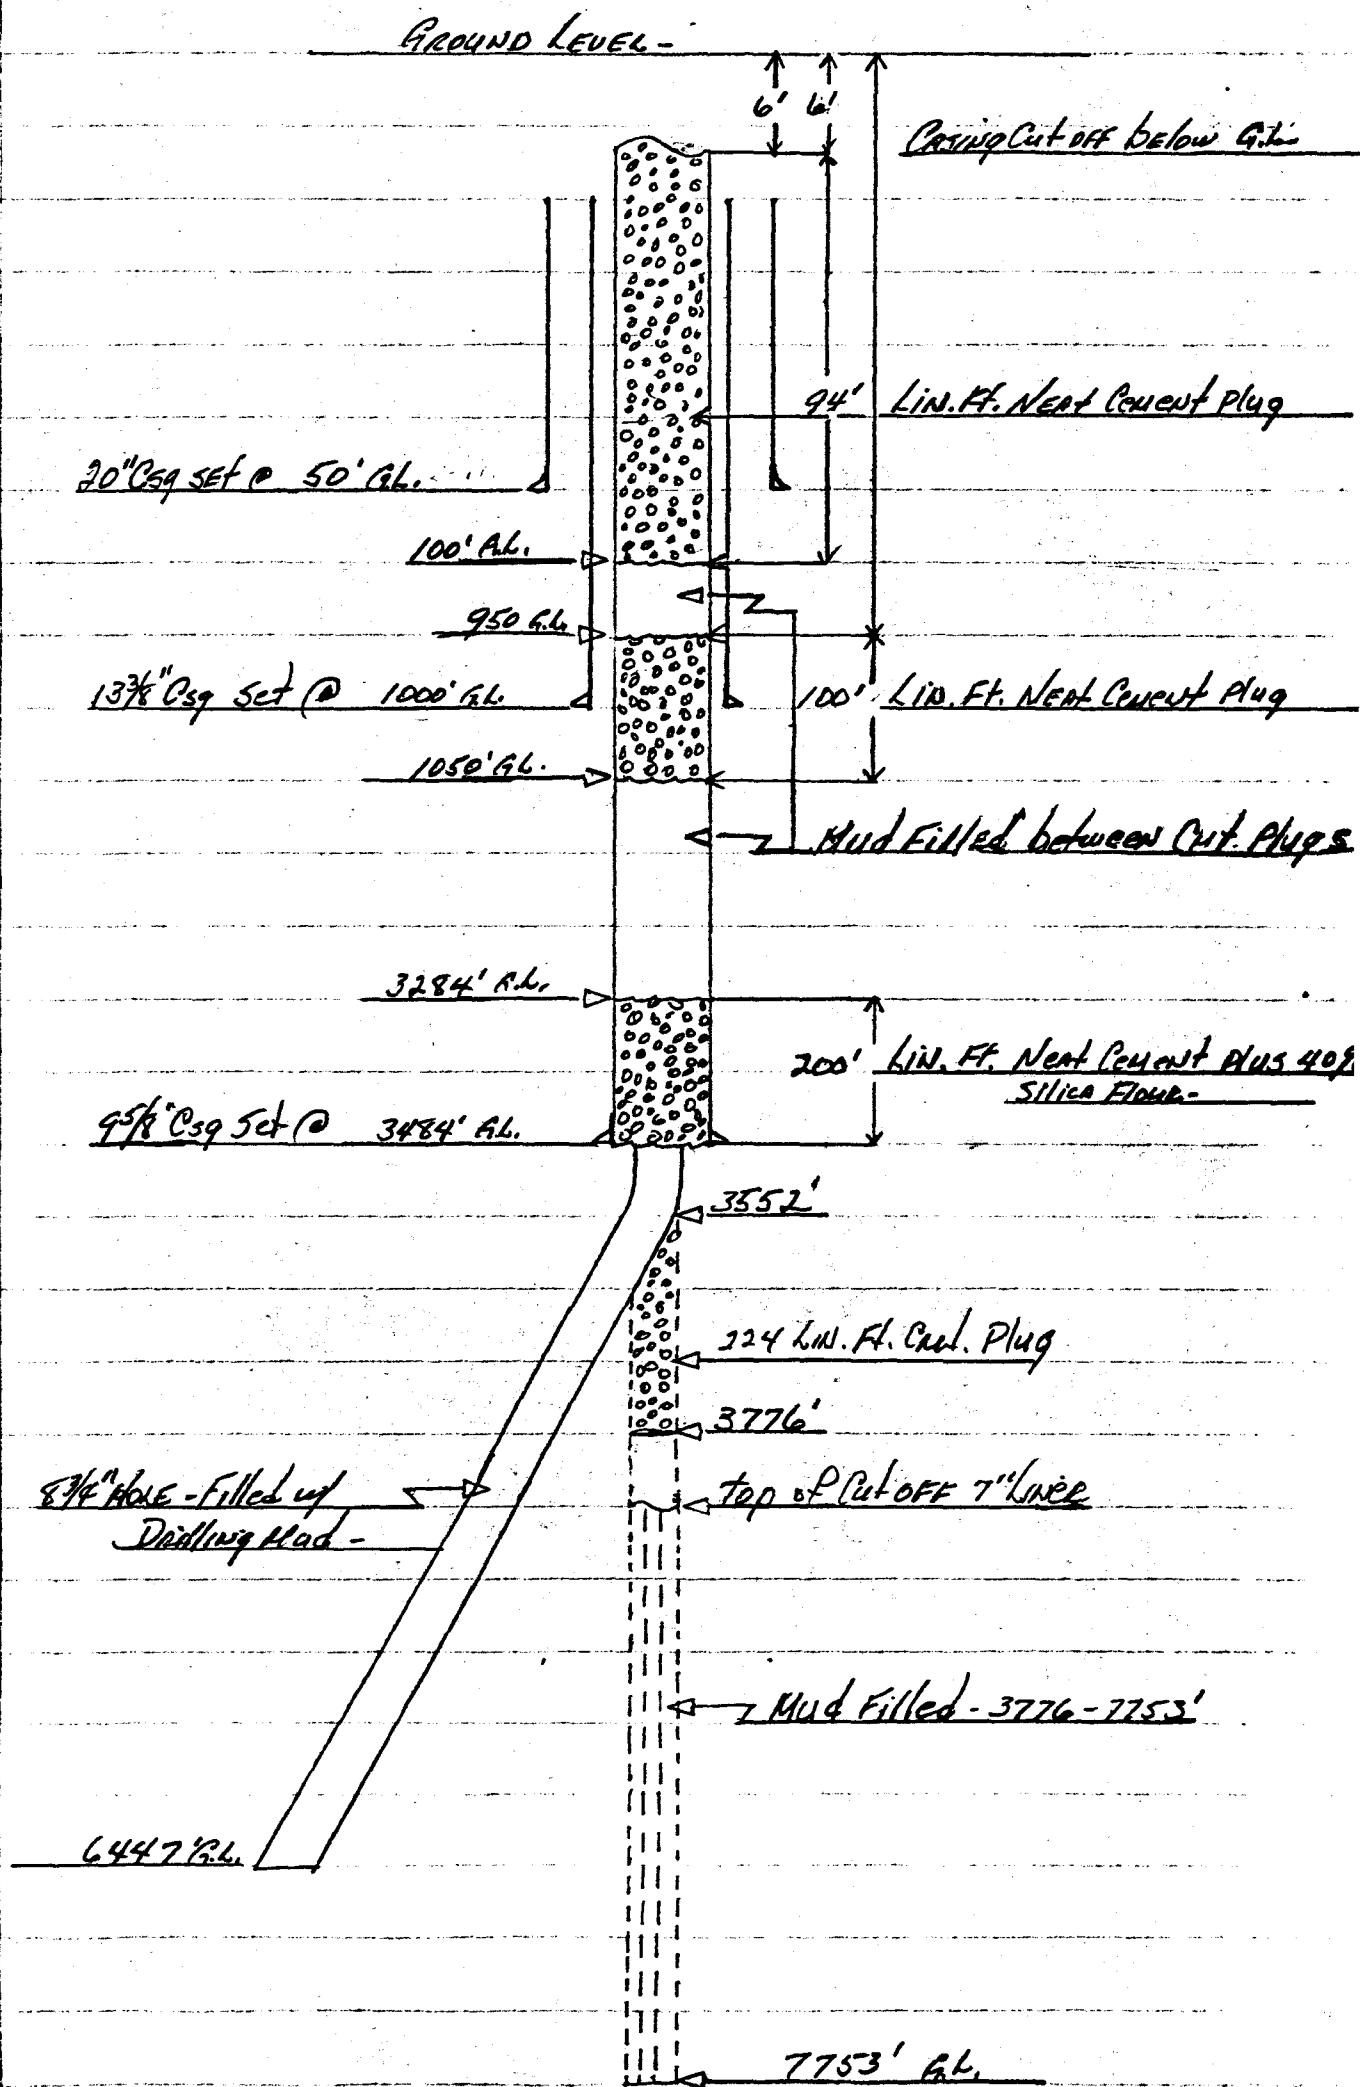 GROUND LEVEL -
6' 6'
Casing Cut off below G.L.
94' Lin. Ft. Neat Cement Plug
20" Csg set @ 50' G.L.
100' G.L.
950 G.L.
13 3/8" Csg Set @ 1000' G.L.
100' Lin. Ft. Neat Cement Plug
1050' G.L.
Mud Filled between Cmt. Plugs
3284' G.L.
200' Lin. Ft. Neat Cement plus 40%
Silica Flour -
9 5/8" Csg Set @ 3484' G.L.
3552'
224 Lin. Ft. Cmt. Plug
3776'
8 3/4" HOLE - Filled w/
Drilling Mud -
top of Cut OFF 7" LINER
Mud Filled - 3776 - 7753'
6447' G.L.
7753' G.L.